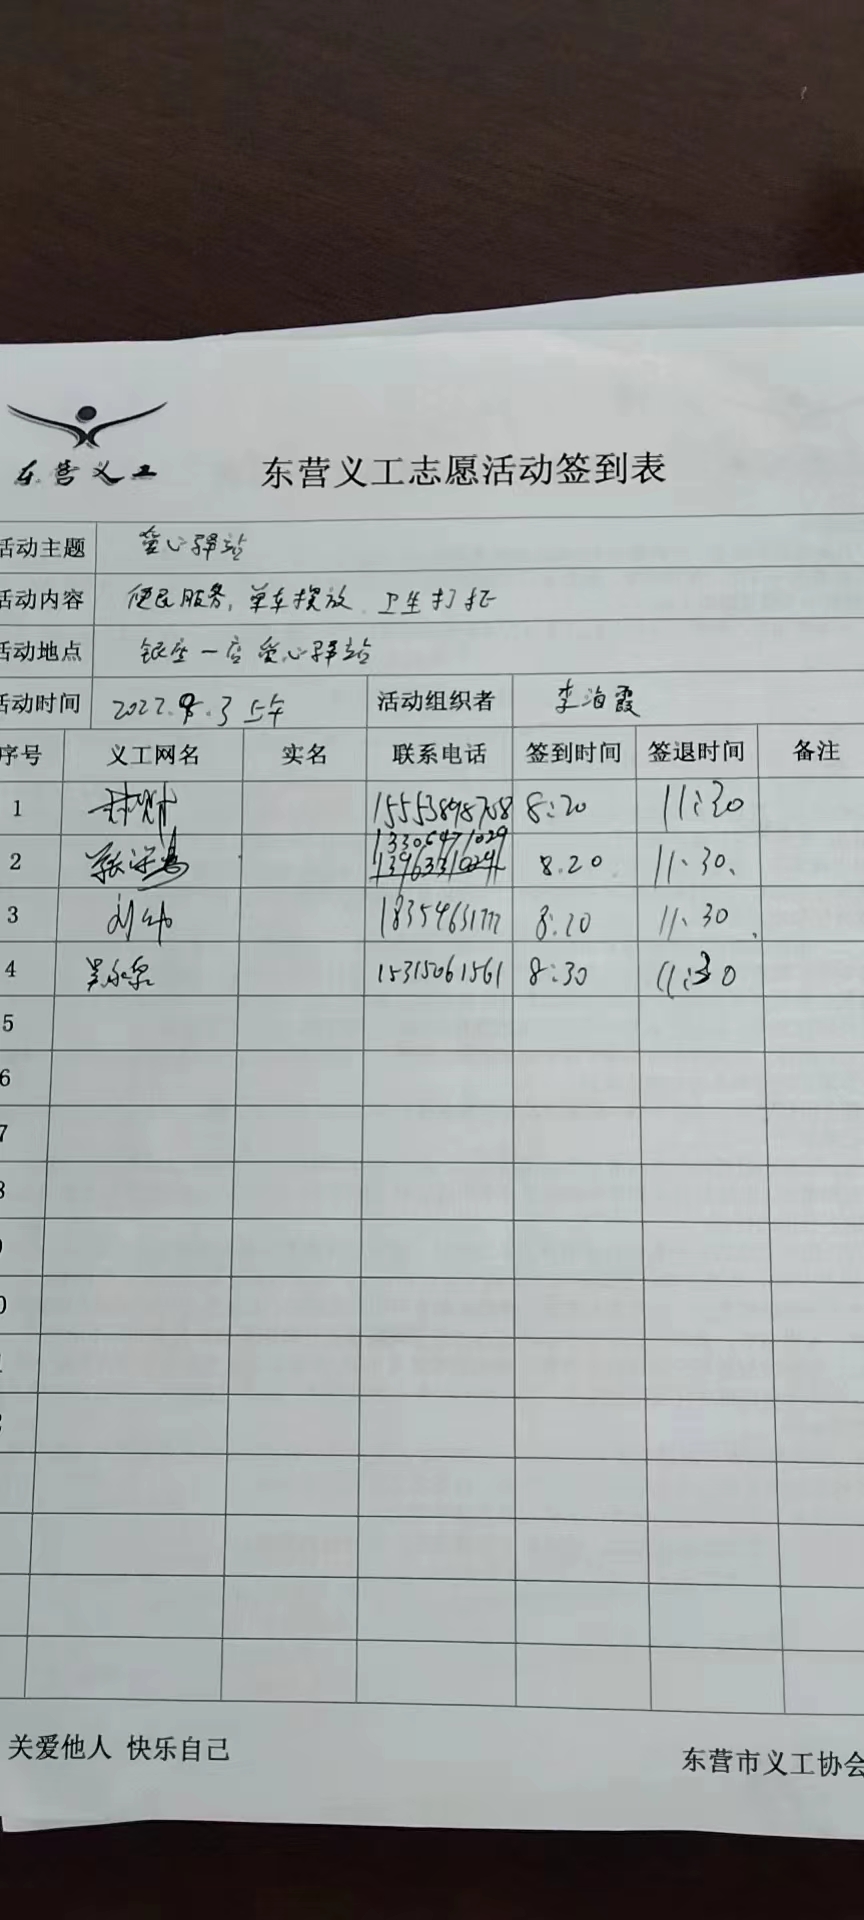 东营义工
东营义工志愿活动签到表
活动主题 爱心驿站
活动内容 便民服务,单车摆放、卫生打扫
活动地点 银座一店爱心驿站
活动时间 2022.8.3上午 活动组织者 李海霞
序号 义工网名 实名 联系电话 签到时间 签退时间 备注
1 15553898758 8:20 11:30
2 13306471029 8.20 11、30、
3 刘仙 8:20 11、30
4 吴永泉 15315061561 8:30 11:30
5
6
7
关爱他人 快乐自己
东营市义工协会